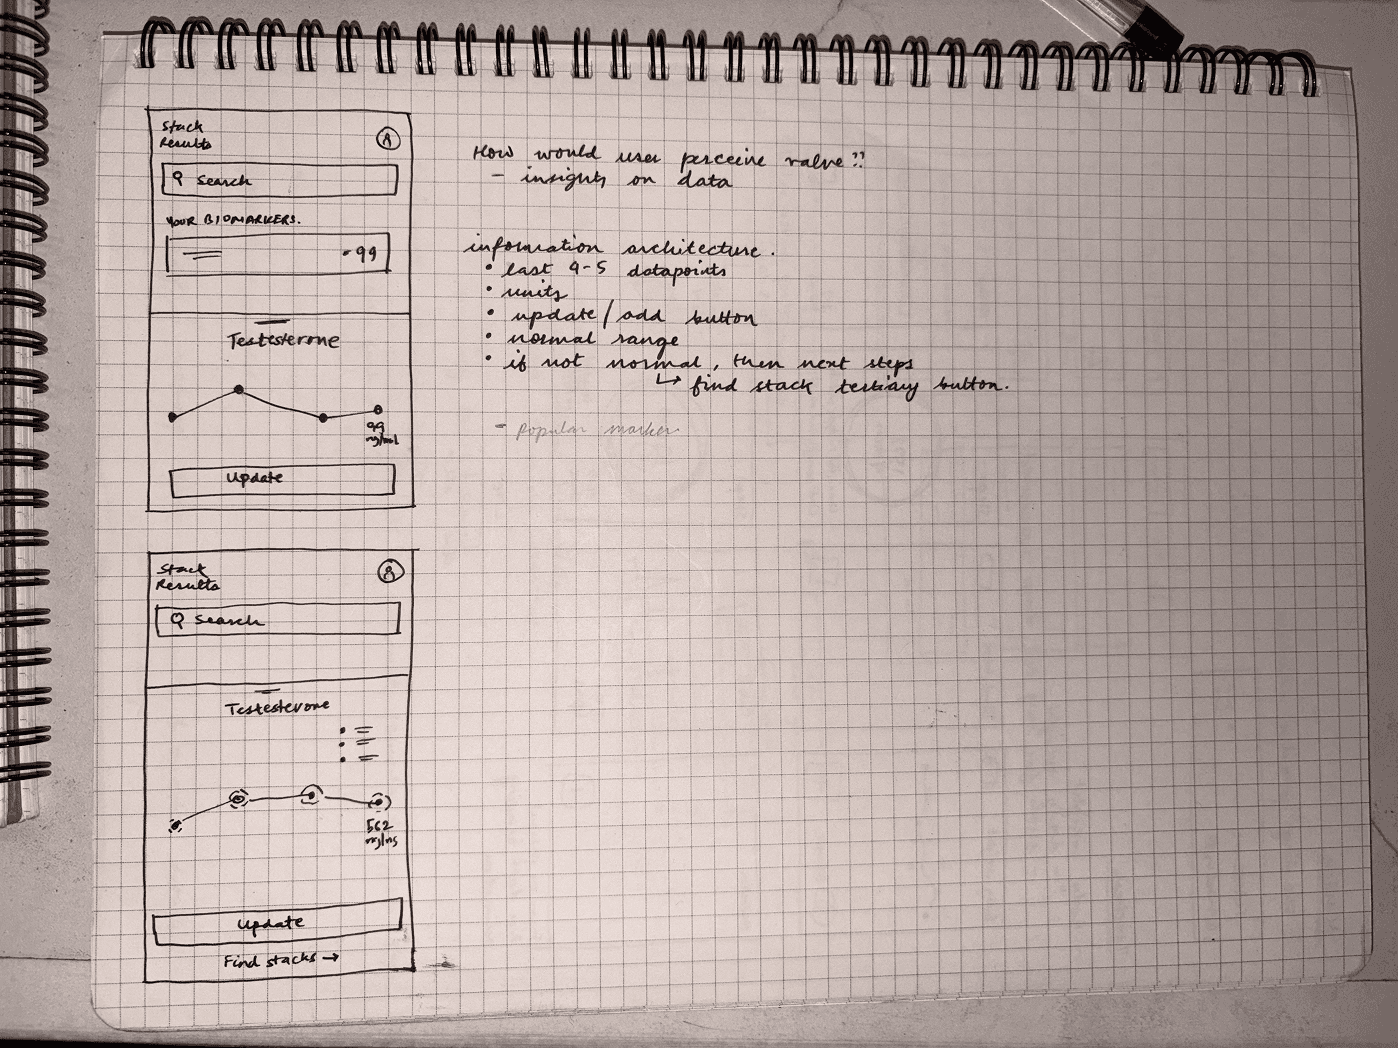 Stack
Results
Search
YOUR BIOMARKERS.
99
Testesterone
99
ng/ml
Update
How would user perceive value??
- insights on data
information architecture.
• last 4-5 datapoints
• units
• update/add button
• normal range
• if not normal, then next steps
↳ find stack tertiary button.
- Popular marker
Stack
Results
Search
Testesterone
562
Update
Find stacks →